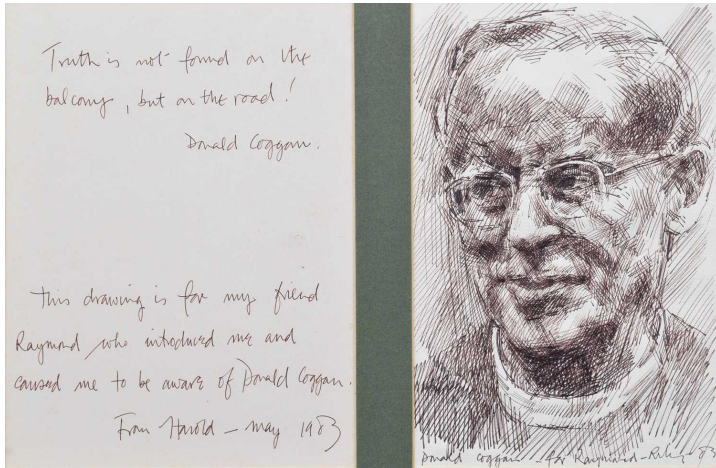 Truth is not found on the
balcony, but on the road!
Donald Coggan.
This drawing is for my friend
Raymond who introduced me and
caused me to be aware of Donald Coggan.
From Harold – May 1983
Donald Coggan – for Raymond – Riley '83